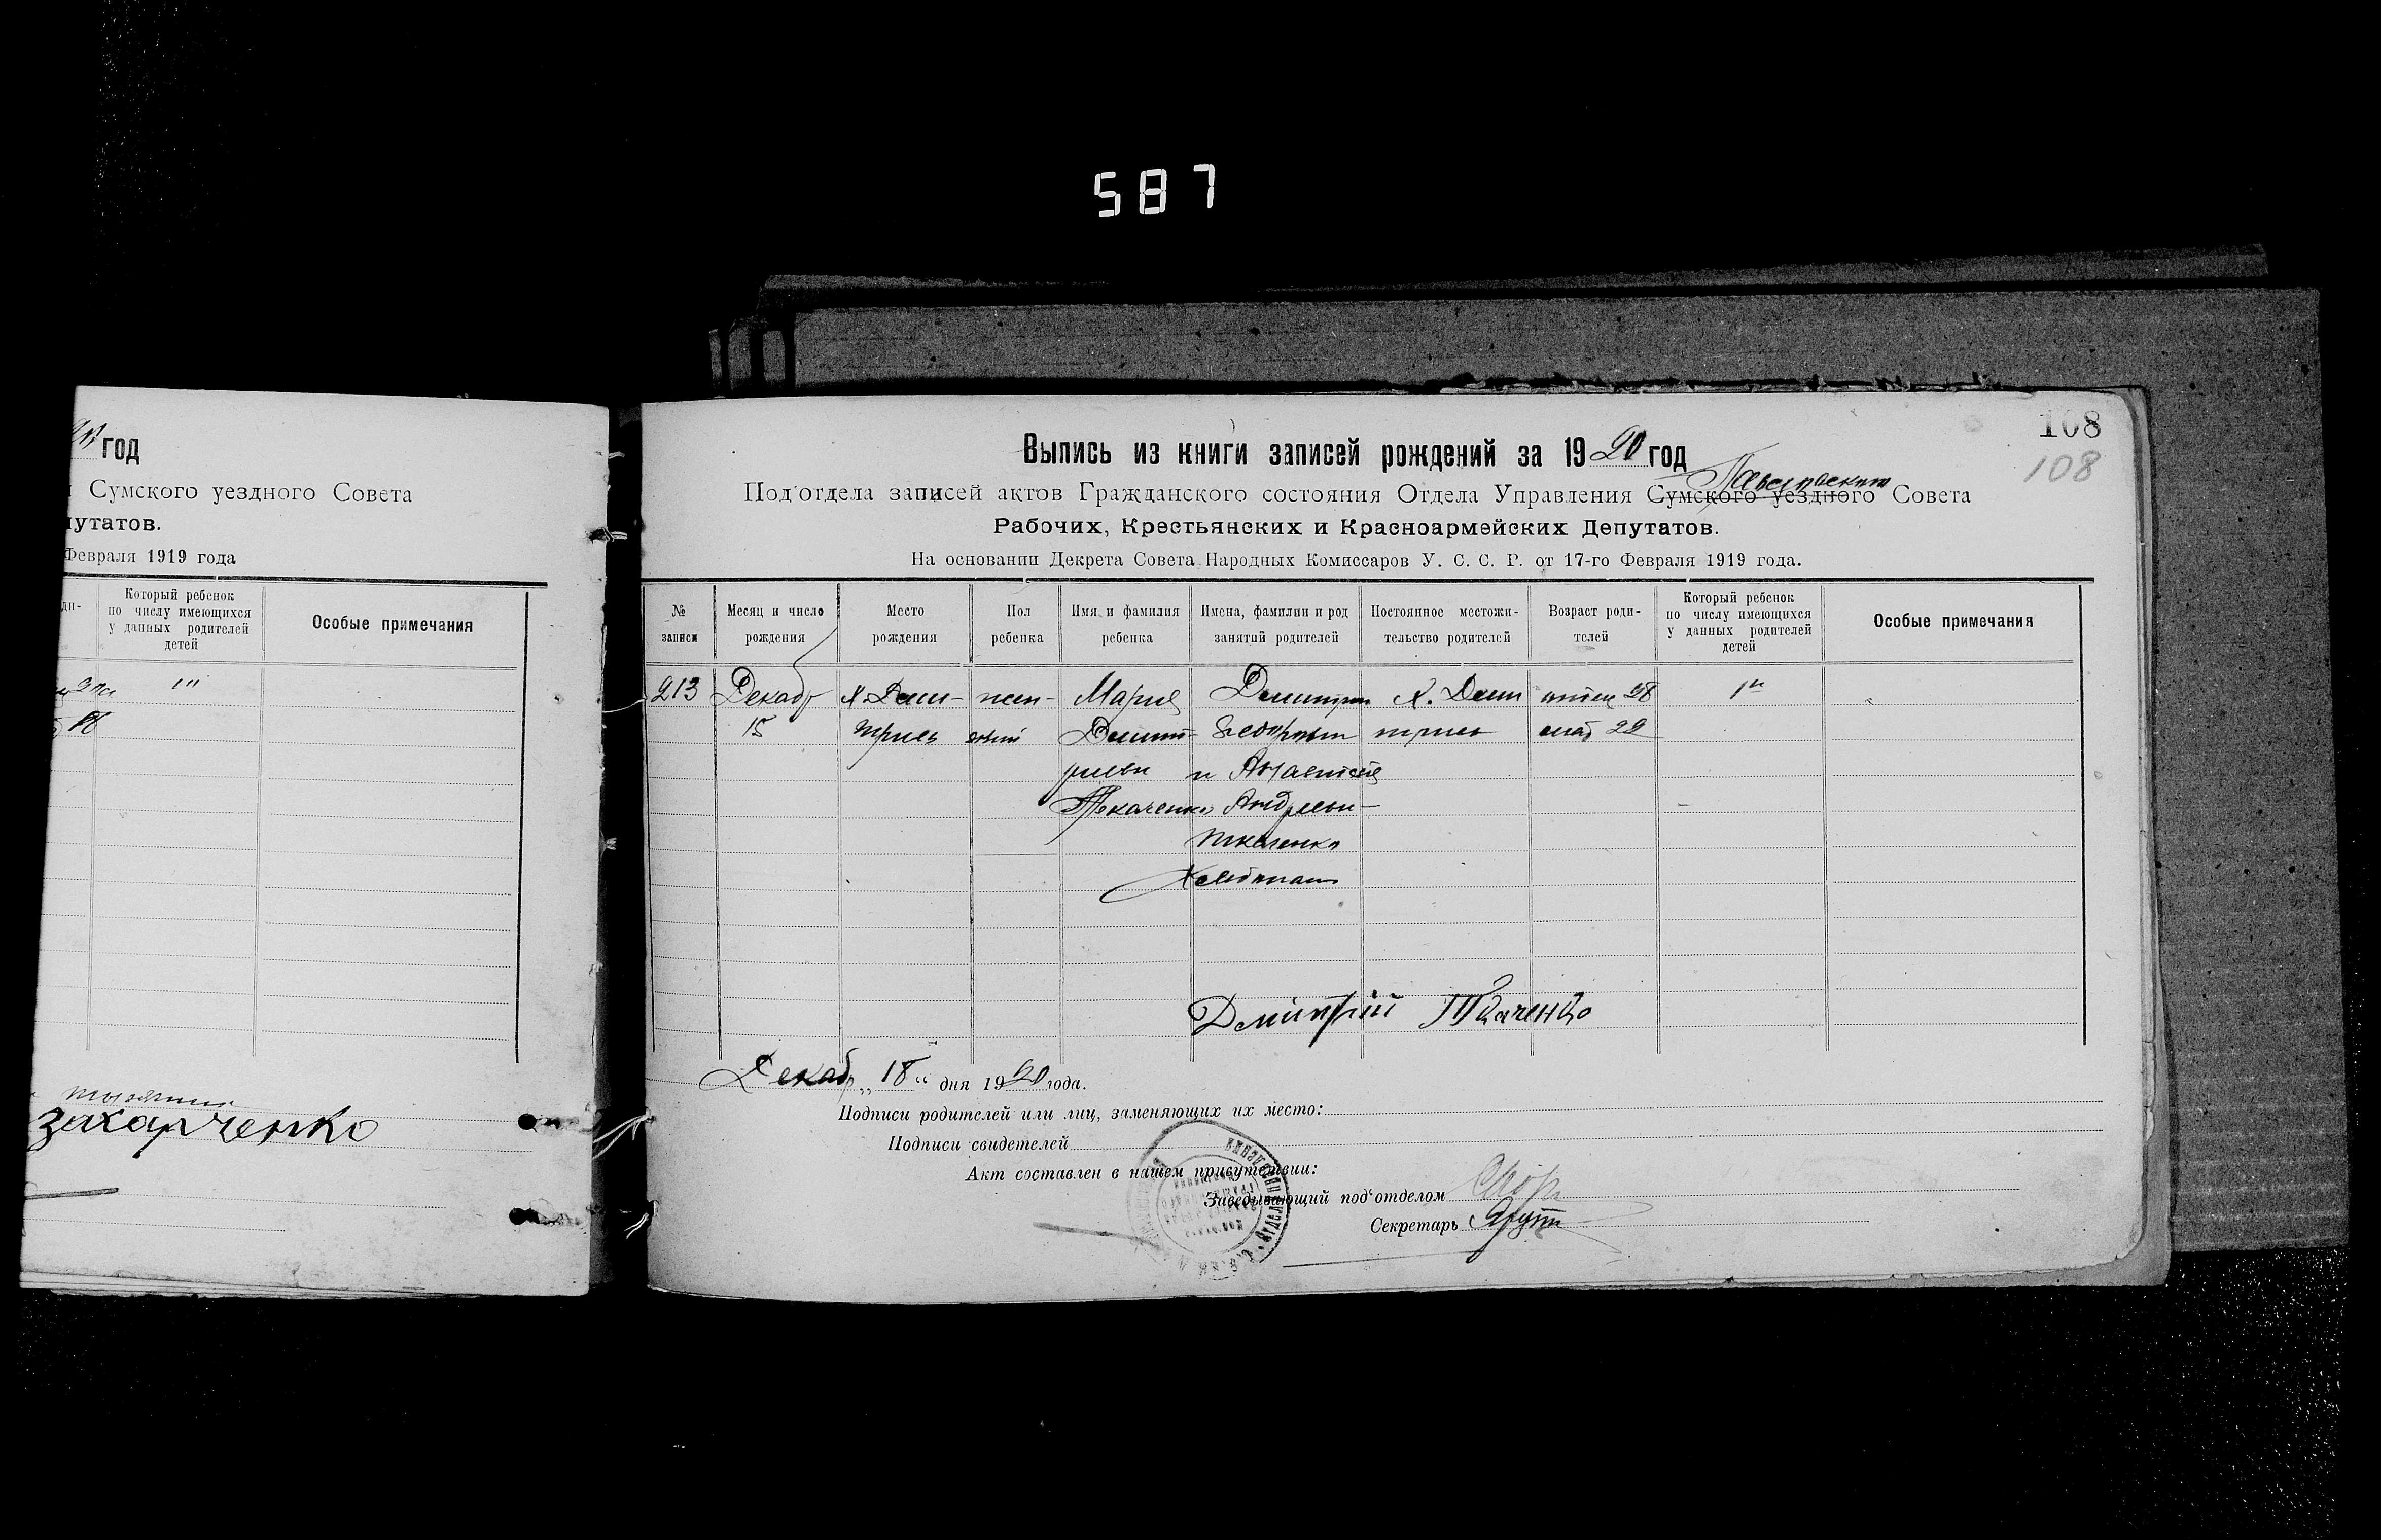 587
год
Сумского уездного Совета
путатов.
Февраля 1919 года
Который ребенок
по числу имеющихся
у данных родителей
детей
Особые примечания
1й
18
Захарченко
108
108
Выпись из книги записей рождений за 1920 год
Под'отдела записей актов Гражданского состояния Отдела Управления Сумского уездного Совета
Рабочих, Крестьянских и Красноармейских Депутатов.
На основании Декрета Совета Народных Комиссаров У. С. С. Р. от 17-го Февраля 1919 года.
№
записи
Месяц и число
рождения
Место
рождения
Пол
ребенка
Имя и фамилия
ребенка
Имена, фамилии и род
занятий родителей
Постоянное местожи-
тельство родителей
Возраст роди-
телей
Который ребенок
по числу имеющихся
у данных родителей
детей
Особые примечания
213 Декабр Х. Дми- жен- Мария Димитрий Х. Дми отец 28 1й
15 триев ский Димит- Федоров триев мат 29
риевн и Анастасия
Ткаченко Андреевн
Ткаченко
Хлебопаш
Димитрій Ткаченко
Декабр „18“ дня 1920 года.
Подписи родителей или лиц, заменяющих их место:
Подписи свидетелей
Акт составлен в нашем присутствии:
Заведывающий под'отделом
Секретарь